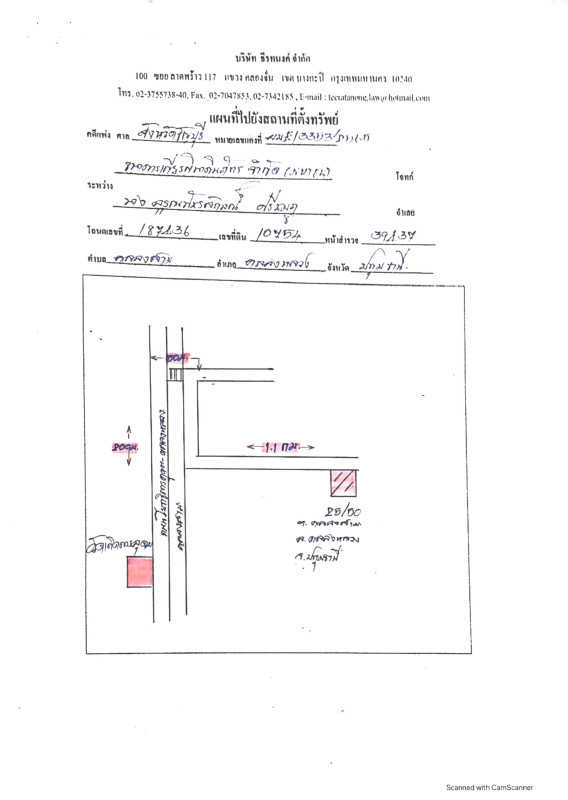 บริษัท ธีรทนงค์ จำกัด
100 ซอย ลาดพร้าว 117 แขวง คลองจั่น เขต บางกะปิ กรุงเทพมหานคร 10240
โทร. 02-3755738-40, Fax. 02-7047853, 02-7342185 , E-mail : teeratanong.law@hotmail.com
แผนที่ไปยังสถานที่ตั้งทรัพย์
คดีแพ่ง ศาล จังหวัดธัญบุรี หมายเลขแดงที่
ธนาคารเกียรตินาคินภัทร จำกัด (มหาชน) โจทก์
ระหว่าง
นาง จำเลย
โฉนดเลขที่ 187436 เลขที่ดิน 10754 หน้าสำรวจ 39437
ตำบล คลองสาม อำเภอ คลองหลวง จังหวัด ปทุมธานี
100ม.
800ม.
1.1 กม
25/60
ต. คลองสาม
อ. คลองหลวง
จ. ปทุมธานี
Scanned with CamScanner